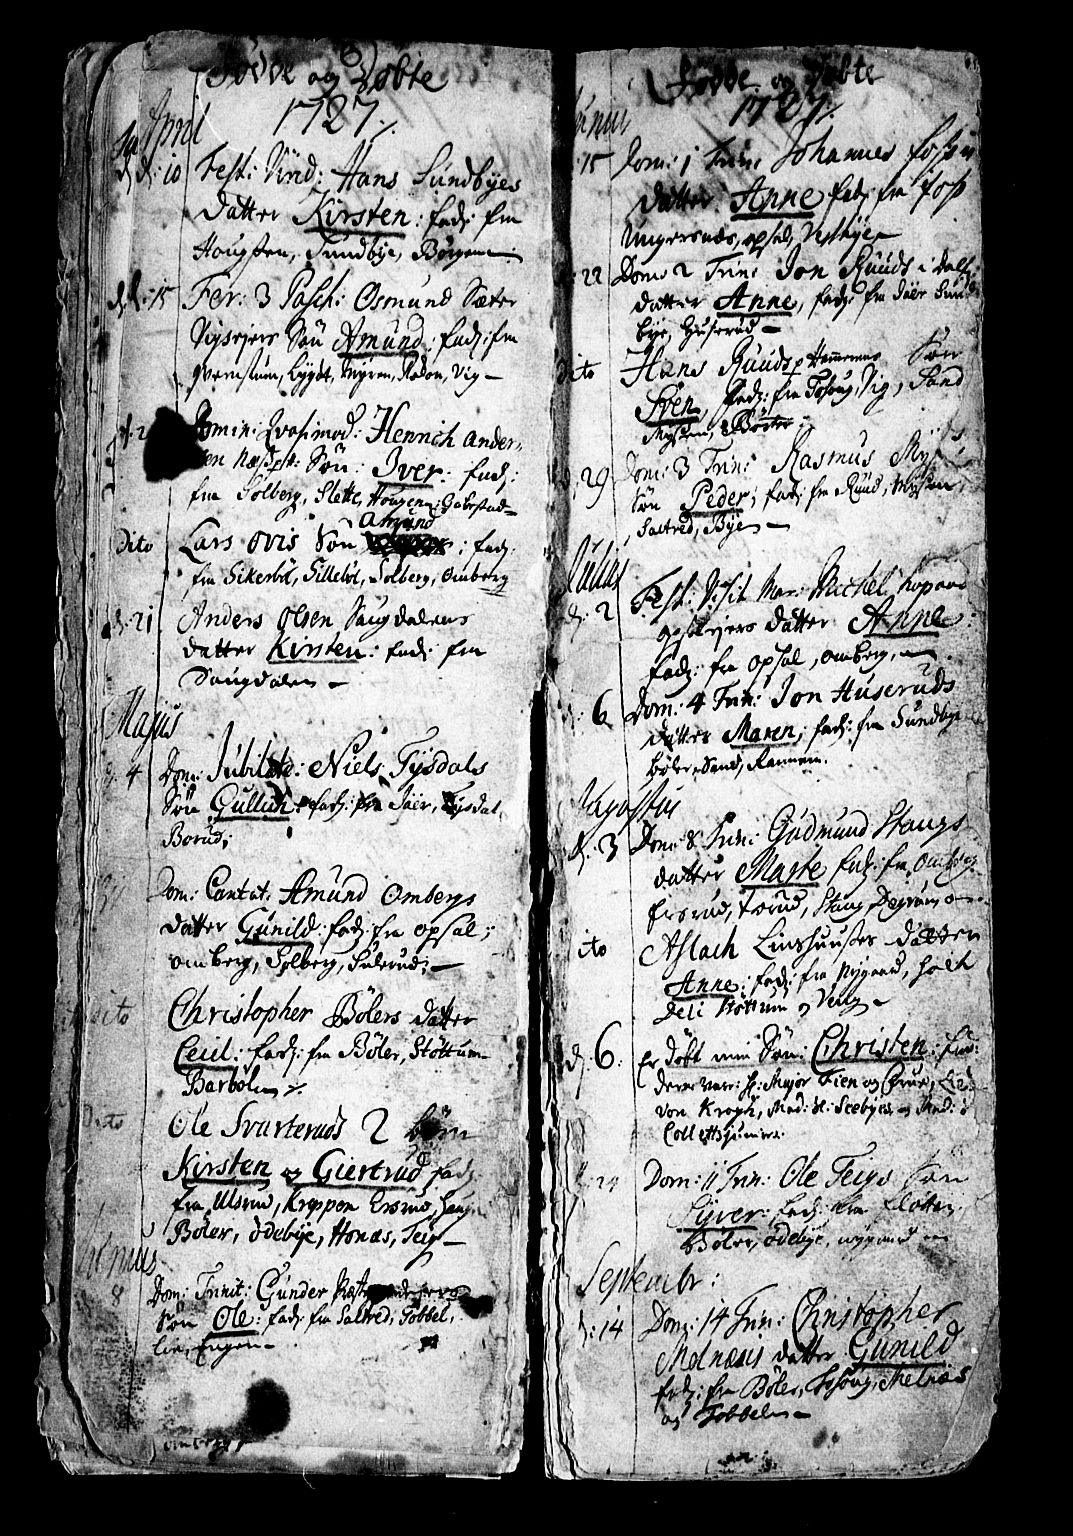 Fødde og Døbte
1727
April
d: 10 Fest: Virid: Hans Sundbyes
datter Kirsten: fad: fra
Hougsten, Sundbye, Børgen
d: 15 Fer: 3 Pasch: Osmund Sæter
Vigseyers Søn Amund: fad: fra
Qvernstuen, Vig
Domin: Qvasimod: Henrich Ander
sen Søn: Iver: fad:
fra Solberg, Slette, Hougen, Gabestad
Amund
Dito Lars Ovis Søn ; fad:
fra Sikebøl, Sillebøl, Solberg, Omberg
d: 21 Anders Olsen Haugdalens
datter Kirsten: fad: fra
Haugdalen
Majus
d: 4 Dom: Jubilate: Niels Tysdals
Søn Gullich: fad: fra Jaer, Tysdal,
Borud;
Dom: Cantat: Amund Ombergs
datter Gunild: fad: fra Opsal;
Omberg, Solberg, Suterud;
Dito Christopher Bølers datter
Cecil: fad: fra Bøler, Støttum
Barbølen
Dito Ole Svarteruds 2 børn
Kirsten og Giertrud fad:
fra Ulsrud, Kroppen
Bøler, Ødebye, Honæs, Teig
Junius
8 Dom: Trinit: Gunder
Søn Ole: fad: fra Saltred, Tobbel,
lie, Engen
Fødde og Døbte
1727
Junius
15 Dom: 1 Trin: Johannes Foss
datter Anne fad: fra Foss
Ungersnæs, Opsal, Vestbye
22 Dom: 2 Trin: Jon Ruuds i
datter Anne, fad: fra Jaer Sund
bye, Huserud
Dito Hans Ruuds Søn
Sven, fad: fra Tosoug, Vig, Sand
Mysen, Bøster
29 Dom: 3 Trin: Rasmus
Søn Peder; fad: fra Ruud, Mysen,
Saltred, Bye
Julius
d: 2 Fest: Visit Mar: Michel
datter Anne:
fad: fra Opsal, Omberg,
6 Dom: 4 Trin: Jon Huseruds
datter Maren; fad: fra Sundbye
Bøler, Sand, Rannem.
Augustus
d: 3 Dom: 8 Trin: Gudmund Staugs
datter Marte fad: fra Omberg
Ersrud, Torud, Staug,
Dito Aslach Linshuuses datter
Anne: fad: fra Nygaard, Holt
Deli Støttum og Velg
d: 6: Er døbt min Søn: Christen: fad:
dere vare: Hr: Major Fien og Frue,
von Krogh, Mad: Sl: Seebyes, og Mad:
Colletts
24 Dom: 11 Trin: Ole Teigs Søn
Syver: fad: fra Kloken,
Bøler, Ødebye, Nygaard
September:
d: 14 Dom: 14 Trin: Christopher
Melnæsis datter Gunild
fad: fra Bøler, Tosoug, Melnæs
og Tobbelen